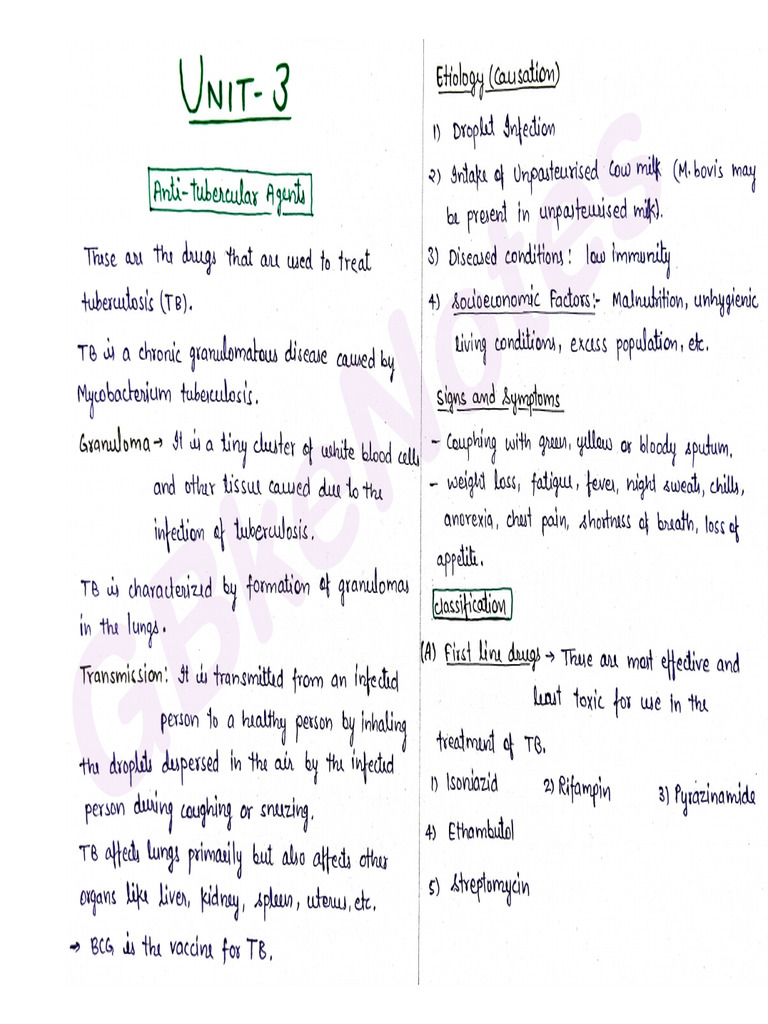 UNIT-3
Anti-tubercular Agents
These are the drugs that are used to treat
tuberculosis (TB).
TB is a chronic granulomatous disease caused by
Mycobacterium tuberculosis.
Granuloma → It is a tiny cluster of white blood cells
and other tissue caused due to the
infection of tuberculosis.
TB is characterized by formation of granulomas
in the lungs.
Transmission: It is transmitted from an infected
person to a healthy person by inhaling
the droplets despersed in the air by the infected
person during coughing or sneezing.
TB affects lungs primarily but also affects other
organs like liver, kidney, spleen, uterus, etc.
→ BCG is the vaccine for TB.
Etiology (Causation)
1) Droplet Infection
2) Intake of Unpasteurised Cow milk (M. bovis may
be present in unpasteurised milk).
3) Diseased conditions: low immunity
4) Socioeconomic Factors:- Malnutrition, unhygienic
living conditions, excess population, etc.
Signs and Symptoms
- Couphing with green, yellow or bloody sputum.
- weight loss, fatigue, fever, night sweats, chills,
anorexia, chest pain, shortness of breath, loss of
appetite.
Classification
(A) First line drugs → These are most effective and
least toxic for use in the
treatment of TB.
1) Isoniazid 2) Rifampin 3) Pyrazinamide
4) Ethambutol
5) Streptomycin
GBkeNotes